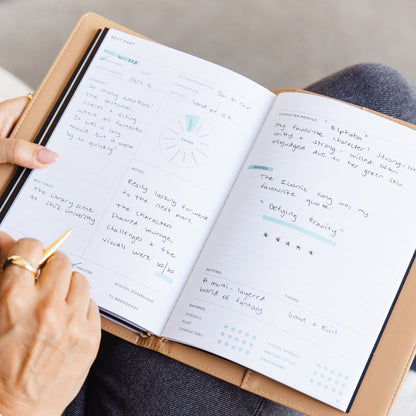 BEST PART
WICKED
Part 1
Jon M. Chu
Land of Oz
SUMMARY
So many emotions!
The costumes,
colors & acting
where all fantastic.
It was a long
movie but went
by so quickly!
GENRE
NOTES
Really looking forward
to the next part.
The characters
showed courage,
challenges + the
visuals were 10/10
BEST PART
The library scene
at Shiz University
THEATER
DIGITAL DOWNLOAD
TV BROADCAST
CHARACTER PROFILE
"Elphaba"
my favourite character! Strong,
witty + strong willed often
misjudged due to her green skin
QUOTES
The Iconic song was my
favourite quote.
"Defying Gravity"
SETTING:
A multi-layered
world of fantasy
THEME:
Good + evil
RATINGS:
OVERALL
PLOT
CHARACTERS
VISUAL APPEAL
WRITING STYLE
ENJOYMENT